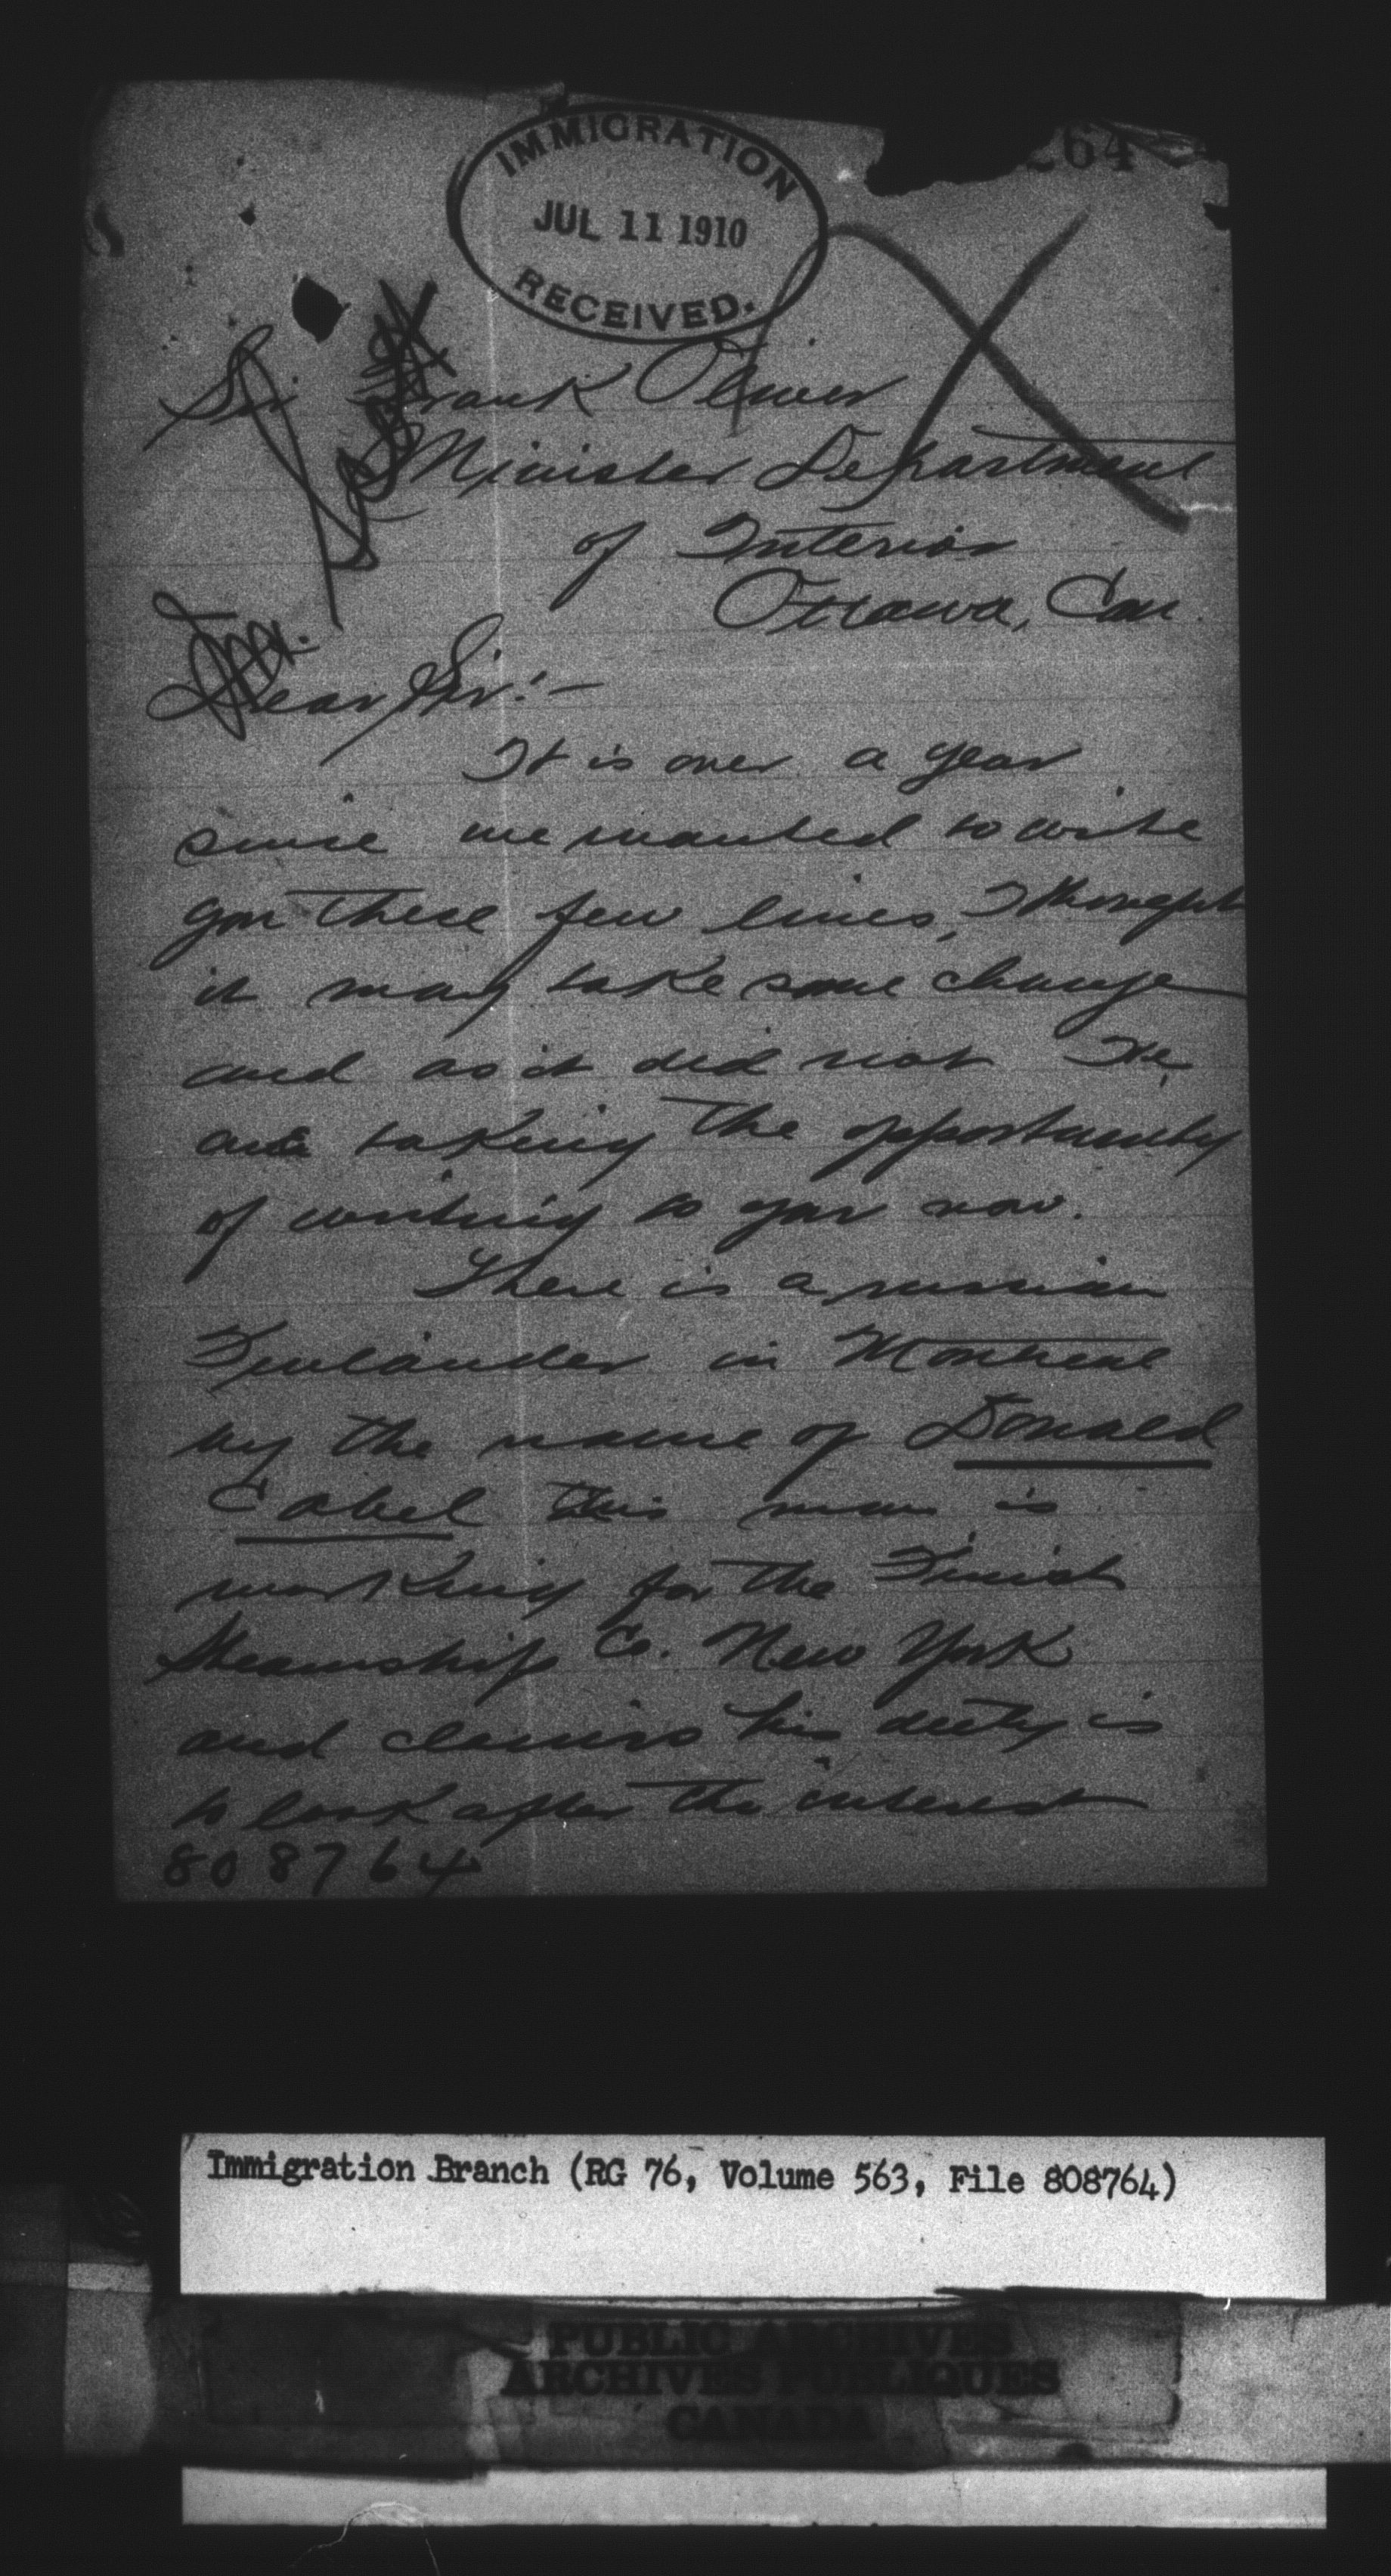 264
IMMIGRATION
JUL 11 1910
RECEIVED.
Sir Frank Oliver
Minister Department
of Interior
Ottawa, Can.
Dear Sir:-
It is over a year
since we wanted to write
you these few lines, I thought
it may take some change
and as it did not We
are taking the opportunity
of writing to you now.
There is a russian
Finlander in Montreal
by the name of Donald
Cabel this man is
working for the Finish
Steamship Co. New York
and claims his duty is
to look after the interest
808764
Immigration Branch (RG 76, Volume 563, File 808764)
PUBLIC ARCHIVES
ARCHIVES PUBLIQUES
CANADA